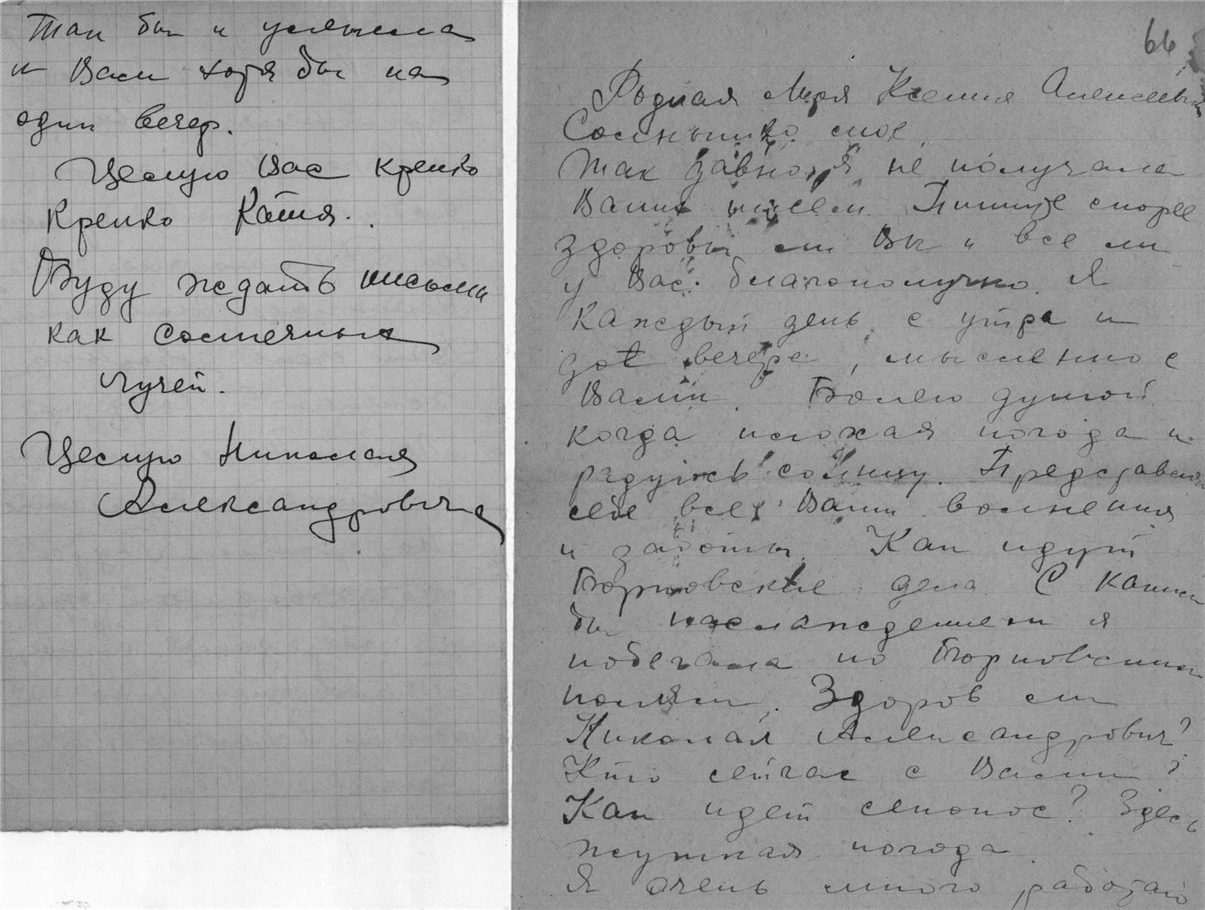 Так бы и уехала
к Вам хотя бы на
один вечер.
Целую Вас крепко
крепко Катя.
Буду ждать письма
как солнечных
лучей.
Целую Николая
Александровича
66
Родная моя Ксения Алексеевна
Солнышко мое
Так давно я не получала
Ваших писем. Пишите скорее
здоровы ли Вы и все ли
у Вас благополучно. Я
каждый день с утра и
до вечера, мысленно с
Вами. Болею душой
когда плохая погода и
радуюсь солнцу. Представляю
себе все Ваши волнения
и заботы. Как идут
Борковские дела. С каким
бы наслаждением я
побегала по Борковским
полям. Здоров ли
Николай Александрович?
Кто сейчас с Вами?
Как идет сенокос? Здесь
жуткая погода
Я очень много работаю